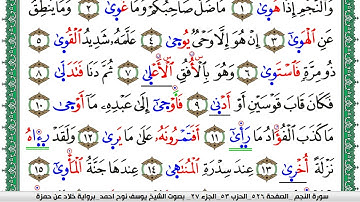 وَٱلنَّجۡمِ إِذَا هَوَىٰ ١ مَا ضَلَّ صَاحِبُكُمۡ وَمَا غَوَىٰ ٢ وَمَا يَنطِقُ
عَنِ ٱلۡهَوَىٰٓ ٣ إِنۡ هُوَ إِلَّا وَحۡيٞ يُوحَىٰ ٤ عَلَّمَهُۥ شَدِيدُ ٱلۡقُوَىٰ ٥
ذُو مِرَّةٖ فَٱسۡتَوَىٰ ٦ وَهُوَ بِٱلۡأُفُقِ ٱلۡأَعۡلَىٰ ٧ ثُمَّ دَنَا فَتَدَلَّىٰ ٨
فَكَانَ قَابَ قَوۡسَيۡنِ أَوۡ أَدۡنَىٰ ٩ فَأَوۡحَىٰٓ إِلَىٰ عَبۡدِهِۦ مَآ أَوۡحَىٰ ١٠
مَا كَذَبَ ٱلۡفُؤَادُ مَا رَأَىٰٓ ١١ أَفَتَمۡرُونَهُۥ عَلَىٰ مَا يَرَىٰ ١٢ وَلَقَدۡ رَءَاهُ
نَزۡلَةً أُخۡرَىٰ ١٣ عِندَ سِدۡرَةِ ٱلۡمُنتَهَىٰ ١٤ عِندَهَا جَنَّةُ ٱلۡمَأۡوَىٰٓ ١٥
سورة النجم _ الصفحة ٥٢٦ _ الحزب ٥٣ _ الجزء ٢٧ _ بصوت الشيخ يوسف نوح أحمد _ برواية خلاد عن حمزة